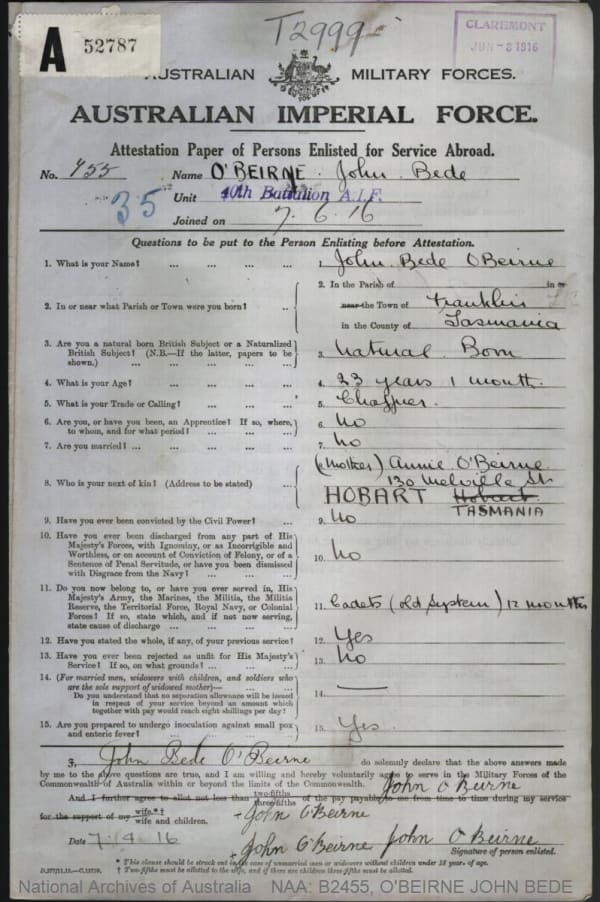 T2999
CLAREMONT
JUN - 8 1916
A 52787
AUSTRALIAN MILITARY FORCES.
AUSTRALIAN IMPERIAL FORCE.
Attestation Paper of Persons Enlisted for Service Abroad.
No. 455 Name O'BEIRNE. John Bede
35 Unit 40th Battalion A.I.F.
Joined on 7. 6. 16
Questions to be put to the Person Enlisting before Attestation.
1. What is your Name? ... ... ... ... 1. John Bede O'Beirne
2. In or near what Parish or Town were you born? ... 2. In the Parish of in or
near the Town of Franklin
in the County of Tasmania
3. Are you a natural born British Subject or a Naturalized
British Subject? (N.B.—If the latter, papers to be
shown.) ... ... ... ... ... 3. Natural Born
4. What is your Age? ... ... ... ... 4. 23 years 1 month.
5. What is your Trade or Calling? ... ... ... 5. Chaffner.
6. Are you, or have you been, an Apprentice? If so, where,
to whom, and for what period? ... ... ... 6. No
7. Are you married? ... ... ... ... ... 7. No
8. Who is your next of kin? (Address to be stated) ... (Mother) Annie O'Beirne
130 Melville St
HOBART Hobart
TASMANIA
9. Have you ever been convicted by the Civil Power? ... 9. No
10. Have you ever been discharged from any part of His
Majesty's Forces, with Ignominy, or as Incorrigible and
Worthless, or on account of Conviction of Felony, or of a
Sentence of Penal Servitude, or have you been dismissed
with Disgrace from the Navy? ... ... ... 10. No
11. Do you now belong to, or have you ever served in, His
Majesty's Army, the Marines, the Militia, the Militia
Reserve, the Territorial Force, Royal Navy, or Colonial
Forces? If so, state which, and if not now serving,
state cause of discharge ... ... ... 11. Cadets (old System) 12 months
12. Have you stated the whole, if any, of your previous service? 12. Yes
13. Have you ever been rejected as unfit for His Majesty's
Service? If so, on what grounds? ... ... ... 13. No
14. (For married men, widowers with children, and soldiers who
are the sole support of widowed mother)—
Do you understand that no separation allowance will be issued
in respect of your service beyond an amount which
together with pay would reach eight shillings per day? 14. —
15. Are you prepared to undergo inoculation against small pox
and enteric fever? ... ... ... ... 15. Yes
I, John Bede O'Beirne do solemnly declare that the above answers made
by me to the above questions are true, and I am willing and hereby voluntarily agree to serve in the Military Forces of the
Commonwealth of Australia within or beyond the limits of the Commonwealth. John O'Beirne
And I further agree to allot not less than two-fifths three-fifths of the pay payable to me from time to time during my service
for the support of my wife.*† wife and children. John O'Beirne
Date 7.4.16 John O'Beirne John O'Beirne
Signature of person enlisted.
* This clause should be struck out in the case of unmarried men or widowers without children under 18 years of age.
† Two-fifths must be allotted to the wife, and if there are children three-fifths must be allotted.
National Archives of Australia NAA: B2455, O'BEIRNE JOHN BEDE